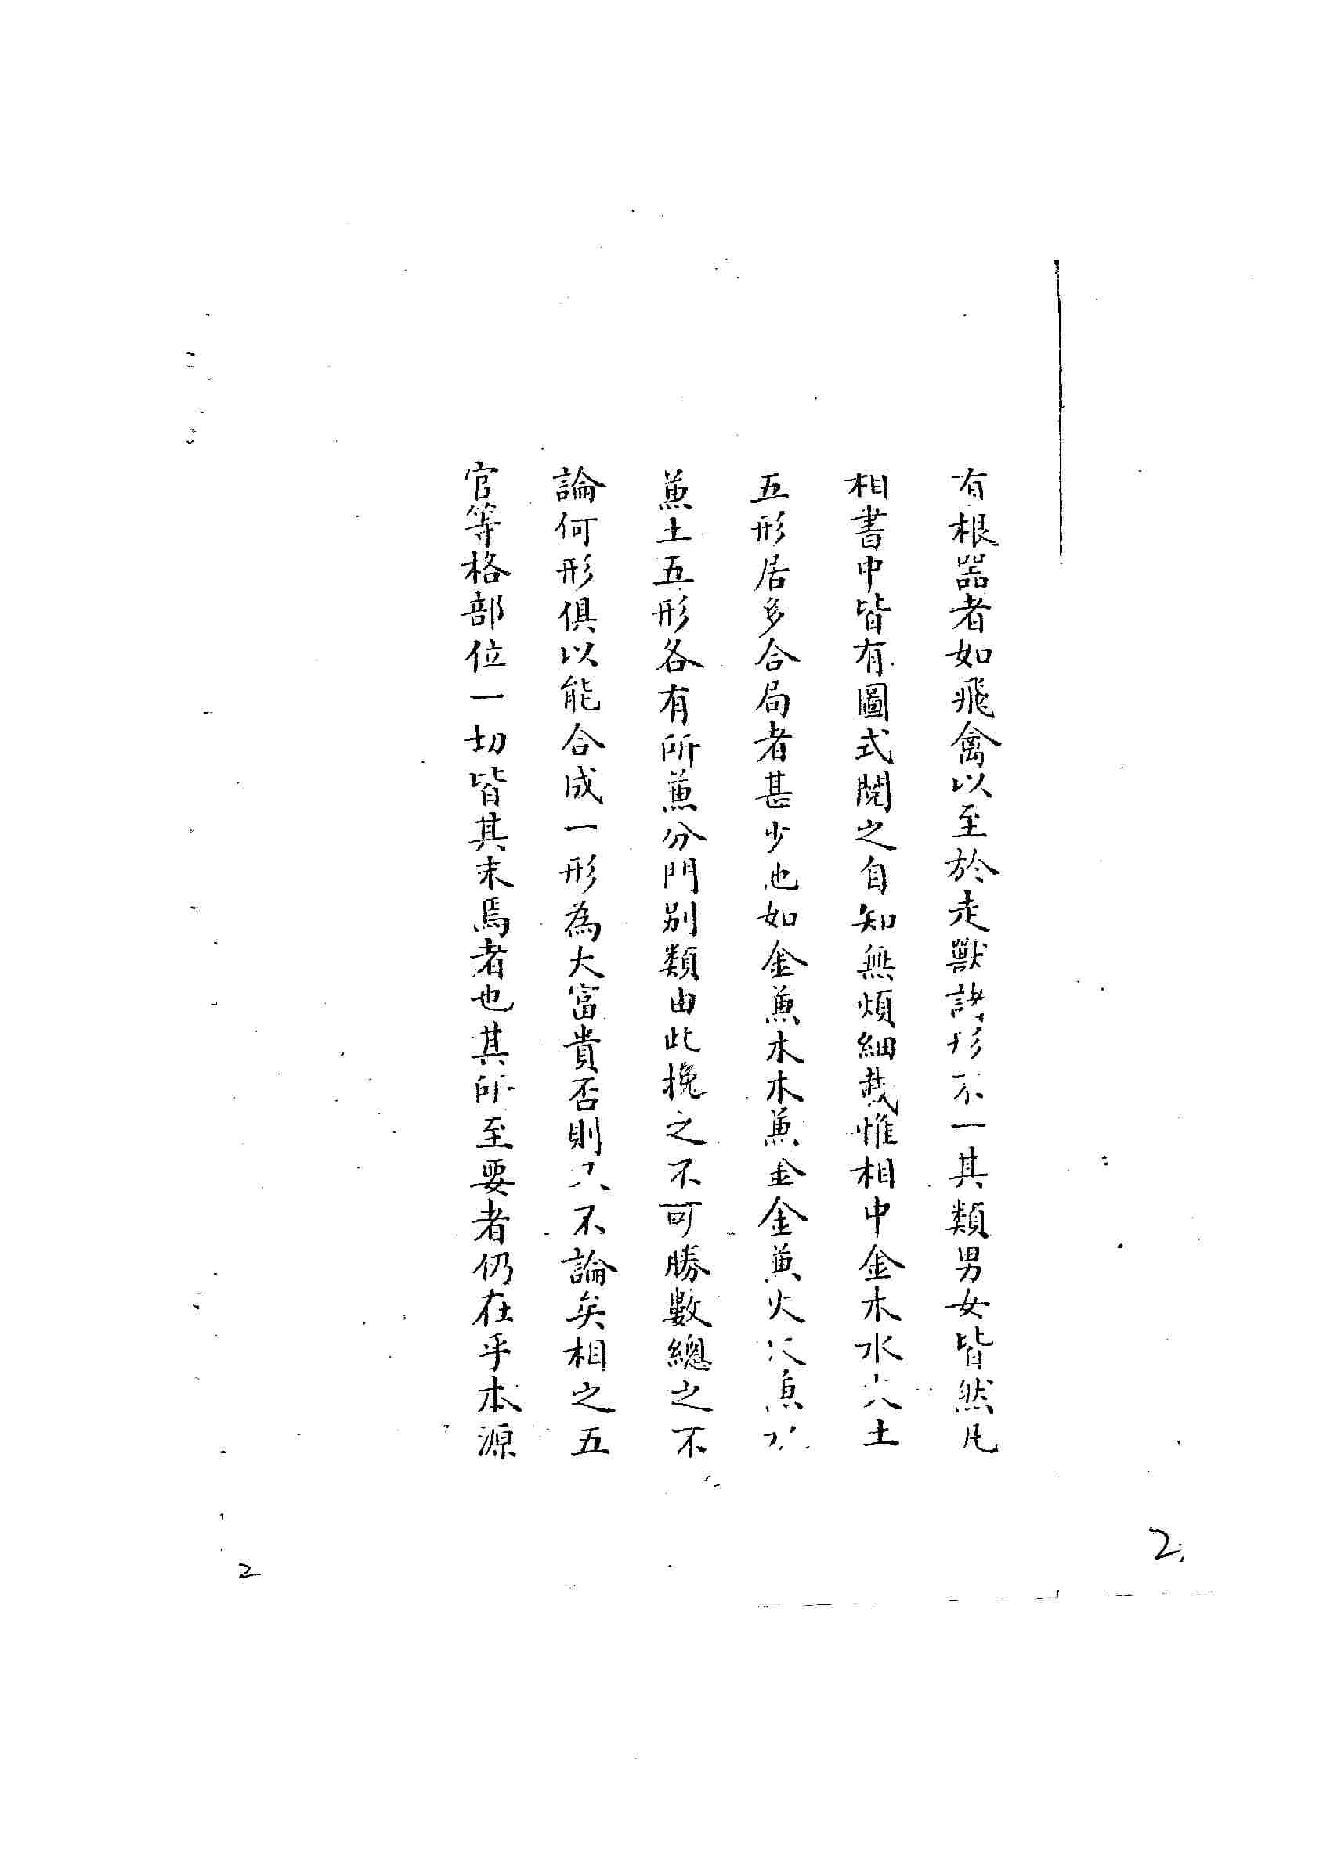 有根器者如飛禽以至於走獸諸形不一其類男女皆然凡
相書中皆有圖式閱之自知無煩細哉惟相中金木水火土
五形居多合局者甚少也如金兼木木兼金金兼火火兼水
兼土五形各有所兼分門別類由此挽之不可勝數總之不
論何形俱以能合成一形為大富貴否則只不論矣相之五
官等格部位一切皆其末焉者也其所至要者仍在乎本源
2
2.